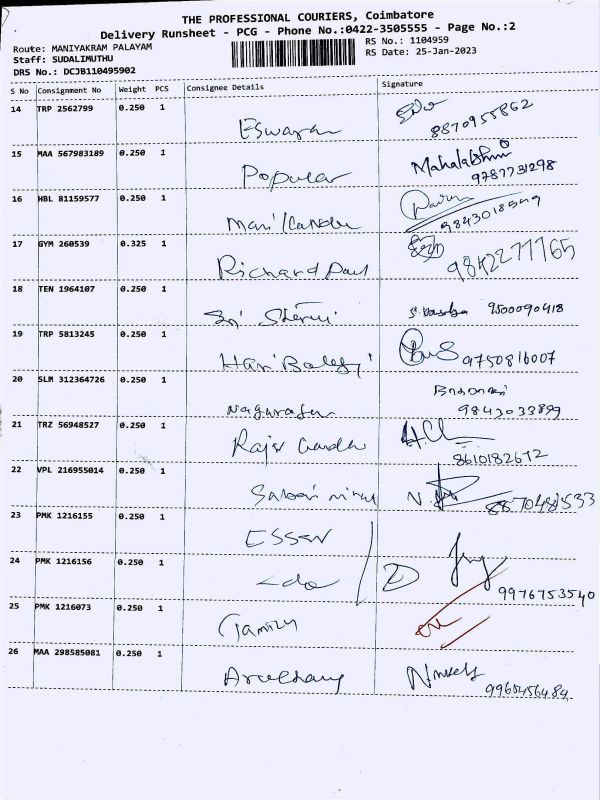 THE PROFESSIONAL COURIERS, Coimbatore
Delivery Runsheet - PCG - Phone No.:0422-3505555 - Page No.:2
Route: MANIYAKRAM PALAYAM
RS No.: 1104959
Staff: SUDALIMUTHU
RS Date: 25-Jan-2023
DRS No.: DCJB110495902
S No Consignment No Weight PCS Consignee Details Signature
14 TRP 2562799 0.250 1
Eswaran 8870955862
15 MAA 567983189 0.250 1 Mahalakshmi
Popular 9787731298
16 HBL 81159577 0.250 1
Manikandan
17 GYM 260539 0.325 1
Richard Paul 9842277765
18 TEN 1964107 0.250 1
Sri 9500090418
19 TRP 5813245 0.250 1
Hari Balaji 9750816007
20 SLM 312364726 0.250 1
Nagarajan 9843033899
21 TRZ 56948527 0.250 1
8610182672
22 VPL 216955014 0.250 1
8870481533
23 PMK 1216155 0.250 1
ESSEN
24 PMK 1216156 0.250 1
2 9976753540
25 PMK 1216073 0.250 1
26 MAA 298585081 0.250 1